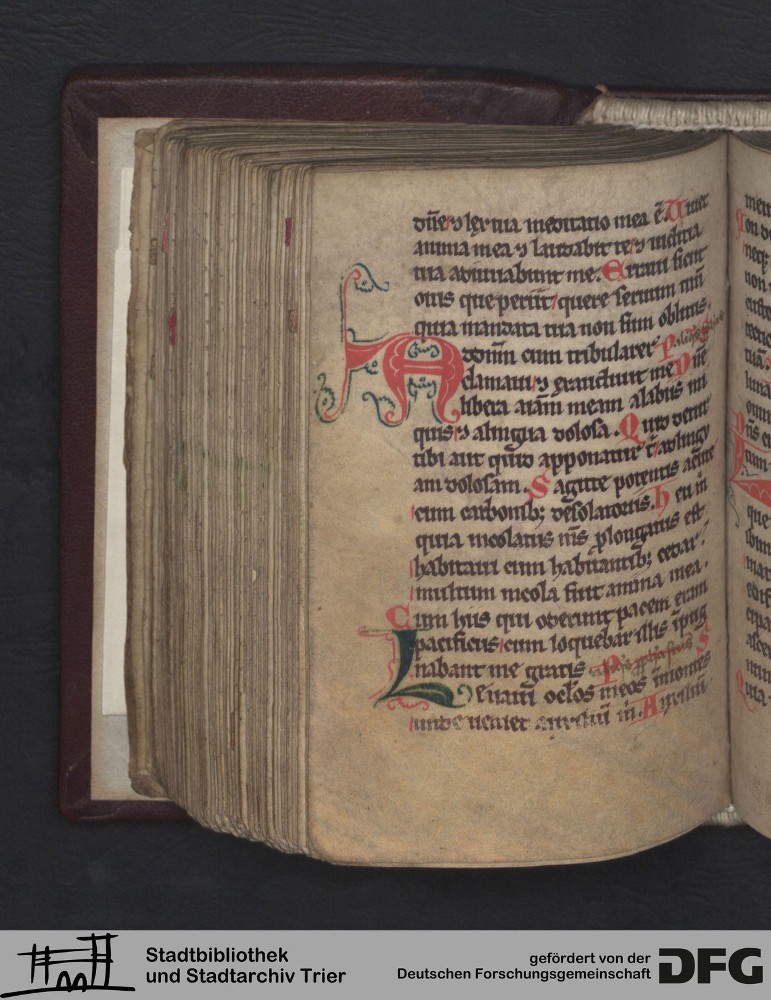 dn̄e ⁊ lex tua meditatio mea ē. Uiuet
anima mea ⁊ laudabit te ⁊ iudicia
tua adiuuabunt me. Erraui sicut
ouis que periit quere seruum tuū
quia mandata tua non sum oblitus.
Ad dominū cum tribularer
clamaui ⁊ exaudiuit me Dn̄e
libera aīam meam a labiis ini
quis ⁊ a lingua dolosa. Quid detur
tibi aut quid apponatur t̄ ad lingu
am dolosam. Sagitte potentis acute
cum carbonib; desolatoriis. heu m̄
quia incolatus m̄s ꝓlongatus est
habitaui cum habitantib; cedar
multum incola fuit anima mea.
Cum hiis qui oderunt pacem eram
pacificus cum loquebar illis īpug
nabant me gratis
Leuaui oc̄los meos ī montes
unde ueniet auxiliū m̄. Auxiliū
Stadtbibliothek
und Stadtarchiv Trier
gefördert von der
Deutschen Forschungsgemeinschaft
DFG